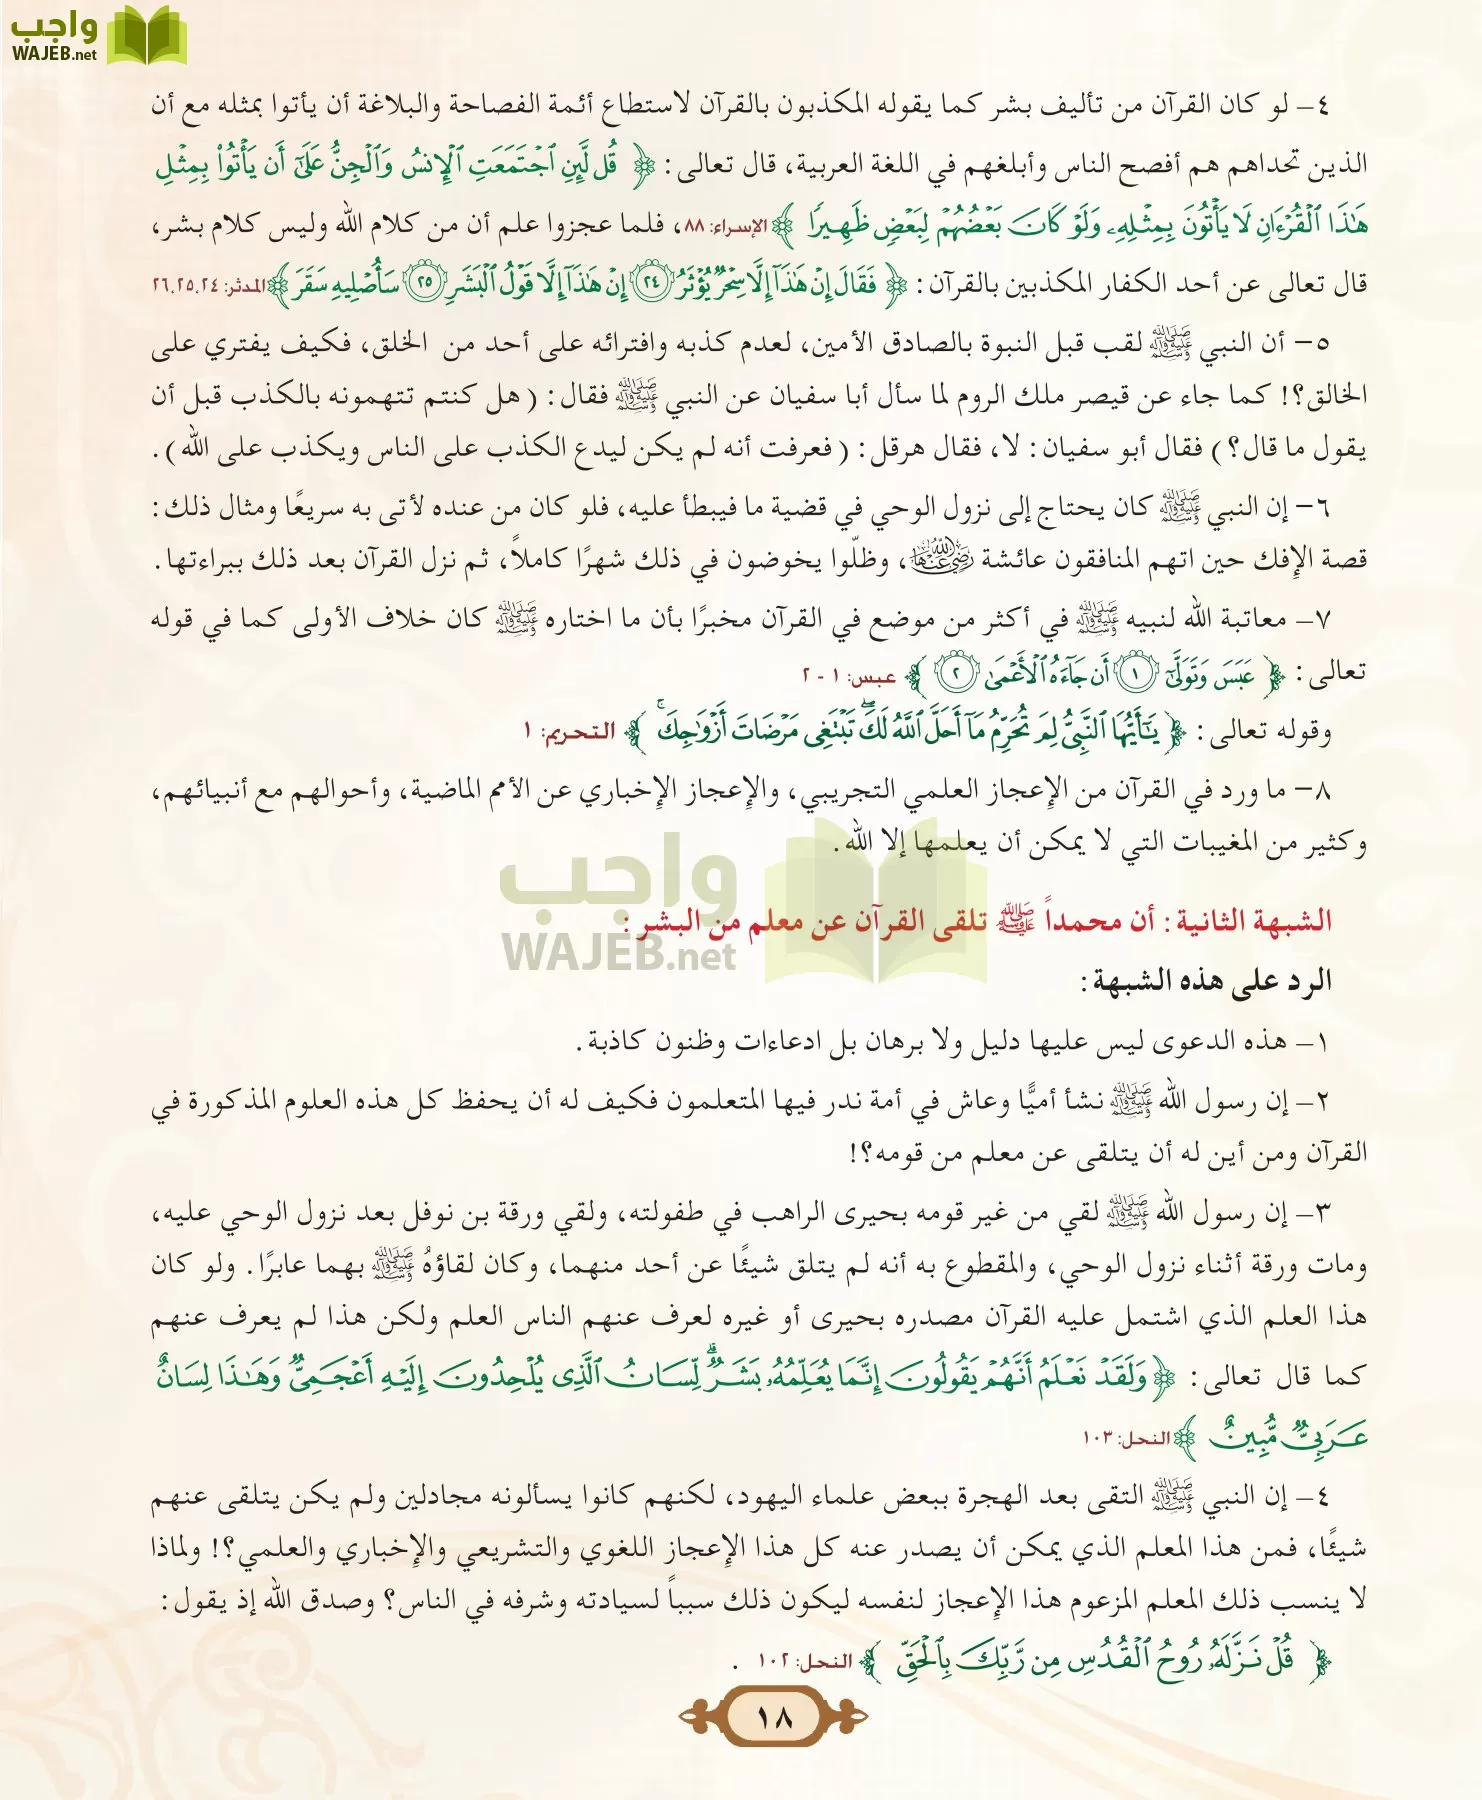 واجب
WAJEB.net
٤– لو كان القرآن من تأليف بشر كما يقوله المكذبون بالقرآن لاستطاع أئمة الفصاحة والبلاغة أن يأتوا بمثله مع أن
الذين تحداهم هم أفصح الناس وأبلغهم في اللغة العربية، قال تعالى: ﴿ قُل لَّئِنِ ٱجۡتَمَعَتِ ٱلۡإِنسُ وَٱلۡجِنُّ عَلَىٰٓ أَن يَأۡتُواْ بِمِثۡلِ
هَٰذَا ٱلۡقُرۡءَانِ لَا يَأۡتُونَ بِمِثۡلِهِۦ وَلَوۡ كَانَ بَعۡضُهُمۡ لِبَعۡضٖ ظَهِيرٗا ﴾ الإسراء: ٨٨، فلما عجزوا علم أن من كلام الله وليس كلام بشر،
قال تعالى عن أحد الكفار المكذبين بالقرآن: ﴿ فَقَالَ إِنۡ هَٰذَآ إِلَّا سِحۡرٞ يُؤۡثَرُ ٢٤ إِنۡ هَٰذَآ إِلَّا قَوۡلُ ٱلۡبَشَرِ ٢٥ سَأُصۡلِيهِ سَقَرَ ﴾ المدثر: ٢٤،٢٥،٢٦
٥– أن النبي ﷺ لقب قبل النبوة بالصادق الأمين، لعدم كذبه وافترائه على أحد من الخلق، فكيف يفتري على
الخالق؟! كما جاء عن قيصر ملك الروم لما سأل أبا سفيان عن النبي ﷺ فقال: ( هل كنتم تتهمونه بالكذب قبل أن
يقول ما قال؟ ) فقال أبو سفيان: لا، فقال هرقل: ( فعرفت أنه لم يكن ليدع الكذب على الناس ويكذب على الله ).
٦– إن النبي ﷺ كان يحتاج إلى نزول الوحي في قضية ما فيبطأ عليه، فلو كان من عنده لأتى به سريعًا ومثال ذلك:
قصة الإفك حين اتهم المنافقون عائشة رضي الله عنها، وظلّوا يخوضون في ذلك شهرًا كاملاً، ثم نزل القرآن بعد ذلك ببراءتها.
٧– معاتبة الله لنبيه ﷺ في أكثر من موضع في القرآن مخبرًا بأن ما اختاره ﷺ كان خلاف الأولى كما في قوله
تعالى: ﴿ عَبَسَ وَتَوَلَّىٰٓ ١ أَن جَآءَهُ ٱلۡأَعۡمَىٰ ٢ ﴾ عبس: ١ - ٢
وقوله تعالى: ﴿ يَٰٓأَيُّهَا ٱلنَّبِيُّ لِمَ تُحَرِّمُ مَآ أَحَلَّ ٱللَّهُ لَكَۖ تَبۡتَغِي مَرۡضَاتَ أَزۡوَٰجِكَۚ ﴾ التحريم: ١
٨– ما ورد في القرآن من الإعجاز العلمي التجريبي، والإعجاز الإخباري عن الأمم الماضية، وأحوالهم مع أنبيائهم،
وكثير من المغيبات التي لا يمكن أن يعلمها إلا الله.
واجب
WAJEB.net
الشبهة الثانية: أن محمداً ﷺ تلقى القرآن عن معلم من البشر:
الرد على هذه الشبهة:
١– هذه الدعوى ليس عليها دليل ولا برهان بل ادعاءات وظنون كاذبة.
٢– إن رسول الله ﷺ نشأ أميًّا وعاش في أمة ندر فيها المتعلمون فكيف له أن يحفظ كل هذه العلوم المذكورة في
القرآن ومن أين له أن يتلقى عن معلم من قومه؟!
٣– إن رسول الله ﷺ لقي من غير قومه بحيرى الراهب في طفولته، ولقي ورقة بن نوفل بعد نزول الوحي عليه،
ومات ورقة أثناء نزول الوحي، والمقطوع به أنه لم يتلق شيئًا عن أحد منهما، وكان لقاؤهُ ﷺ بهما عابرًا. ولو كان
هذا العلم الذي اشتمل عليه القرآن مصدره بحيرى أو غيره لعرف عنهم الناس العلم ولكن هذا لم يعرف عنهم
كما قال تعالى: ﴿ وَلَقَدۡ نَعۡلَمُ أَنَّهُمۡ يَقُولُونَ إِنَّمَا يُعَلِّمُهُۥ بَشَرٞۗ لِّسَانُ ٱلَّذِي يُلۡحِدُونَ إِلَيۡهِ أَعۡجَمِيّٞ وَهَٰذَا لِسَانٌ
عَرَبِيّٞ مُّبِينٞ ﴾ النحل: ١٠٣
٤– إن النبي ﷺ التقى بعد الهجرة ببعض علماء اليهود، لكنهم كانوا يسألونه مجادلين ولم يكن يتلقى عنهم
شيئًا، فمن هذا المعلم الذي يمكن أن يصدر عنه كل هذا الإعجاز اللغوي والتشريعي والإخباري والعلمي؟! ولماذا
لا ينسب ذلك المعلم المزعوم هذا الإعجاز لنفسه ليكون ذلك سبباً لسيادته وشرفه في الناس؟ وصدق الله إذ يقول:
﴿ قُلۡ نَزَّلَهُۥ رُوحُ ٱلۡقُدُسِ مِن رَّبِّكَ بِٱلۡحَقِّ ﴾ النحل: ١٠٢ .
١٨